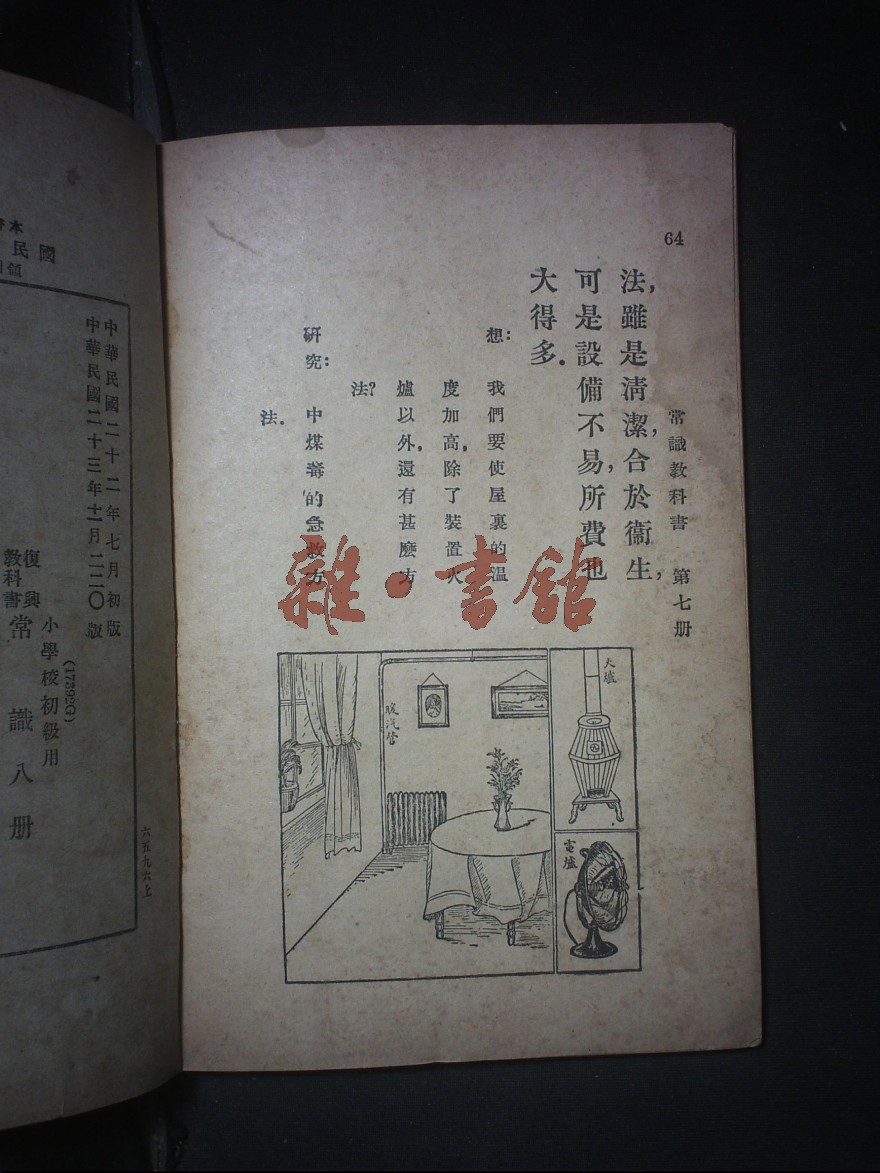 64
常識教科書　第七册
法，雖是清潔，合於衞生，
可是設備不易，所費也
大得多．
想：
我們要使屋裏的溫
度加高，除了裝置火
爐以外，還有甚麽方
法？
研究：
中煤毒的急救方
法．
火爐
電爐
暖汽管
雜·書館
國民
中華民國二十二年七月初版
中華民國二十三年十一月二二〇版
(17392G)
小學校初級用
復興教科書
常識八册
六五九六上